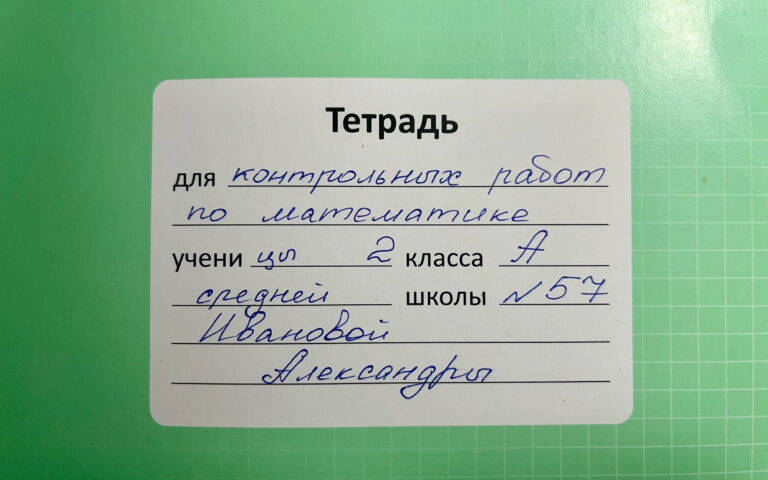 Тетрадь
для контрольных работ
по математике
учени цы 2 класса А
средней школы №57
Ивановой
Александры